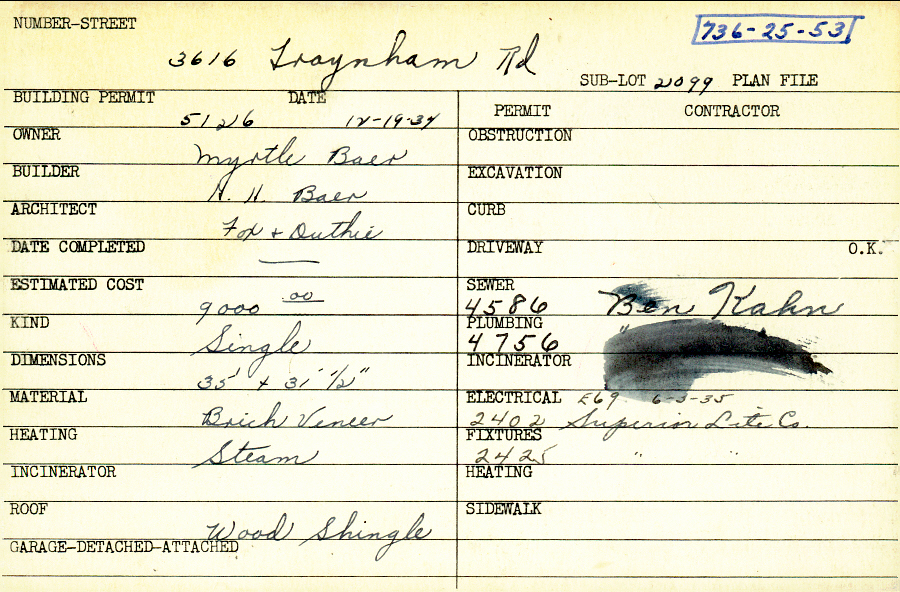 NUMBER-STREET
736-25-53
3616 Traynham Rd
SUB-LOT 2099 PLAN FILE
BUILDING PERMIT DATE
5126 12-19-34
OWNER
Myrtle Baer
BUILDER
H. H. Baer
ARCHITECT
Fox + Duthie
DATE COMPLETED
—
ESTIMATED COST
9000 00
KIND
Single
DIMENSIONS
35' + 31' 1/2"
MATERIAL
Brick Veneer
HEATING
Steam
INCINERATOR
ROOF
Wood Shingle
GARAGE-DETACHED-ATTACHED
PERMIT CONTRACTOR
OBSTRUCTION
EXCAVATION
CURB
DRIVEWAY O.K.
SEWER
4586 Ben Kahn
PLUMBING
4756 "
INCINERATOR
ELECTRICAL E69 6-3-35
2402 Superior Lite Co.
FIXTURES
2425 " "
HEATING
SIDEWALK